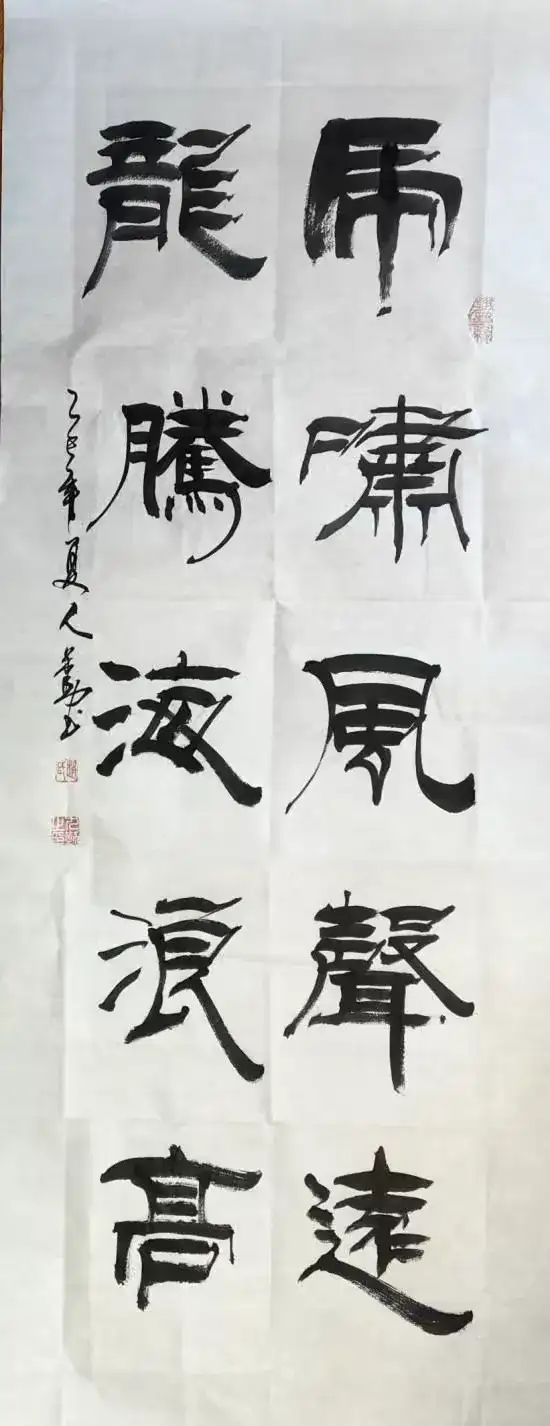 虎嘯風聲遠
龍騰海浪高
年夏人